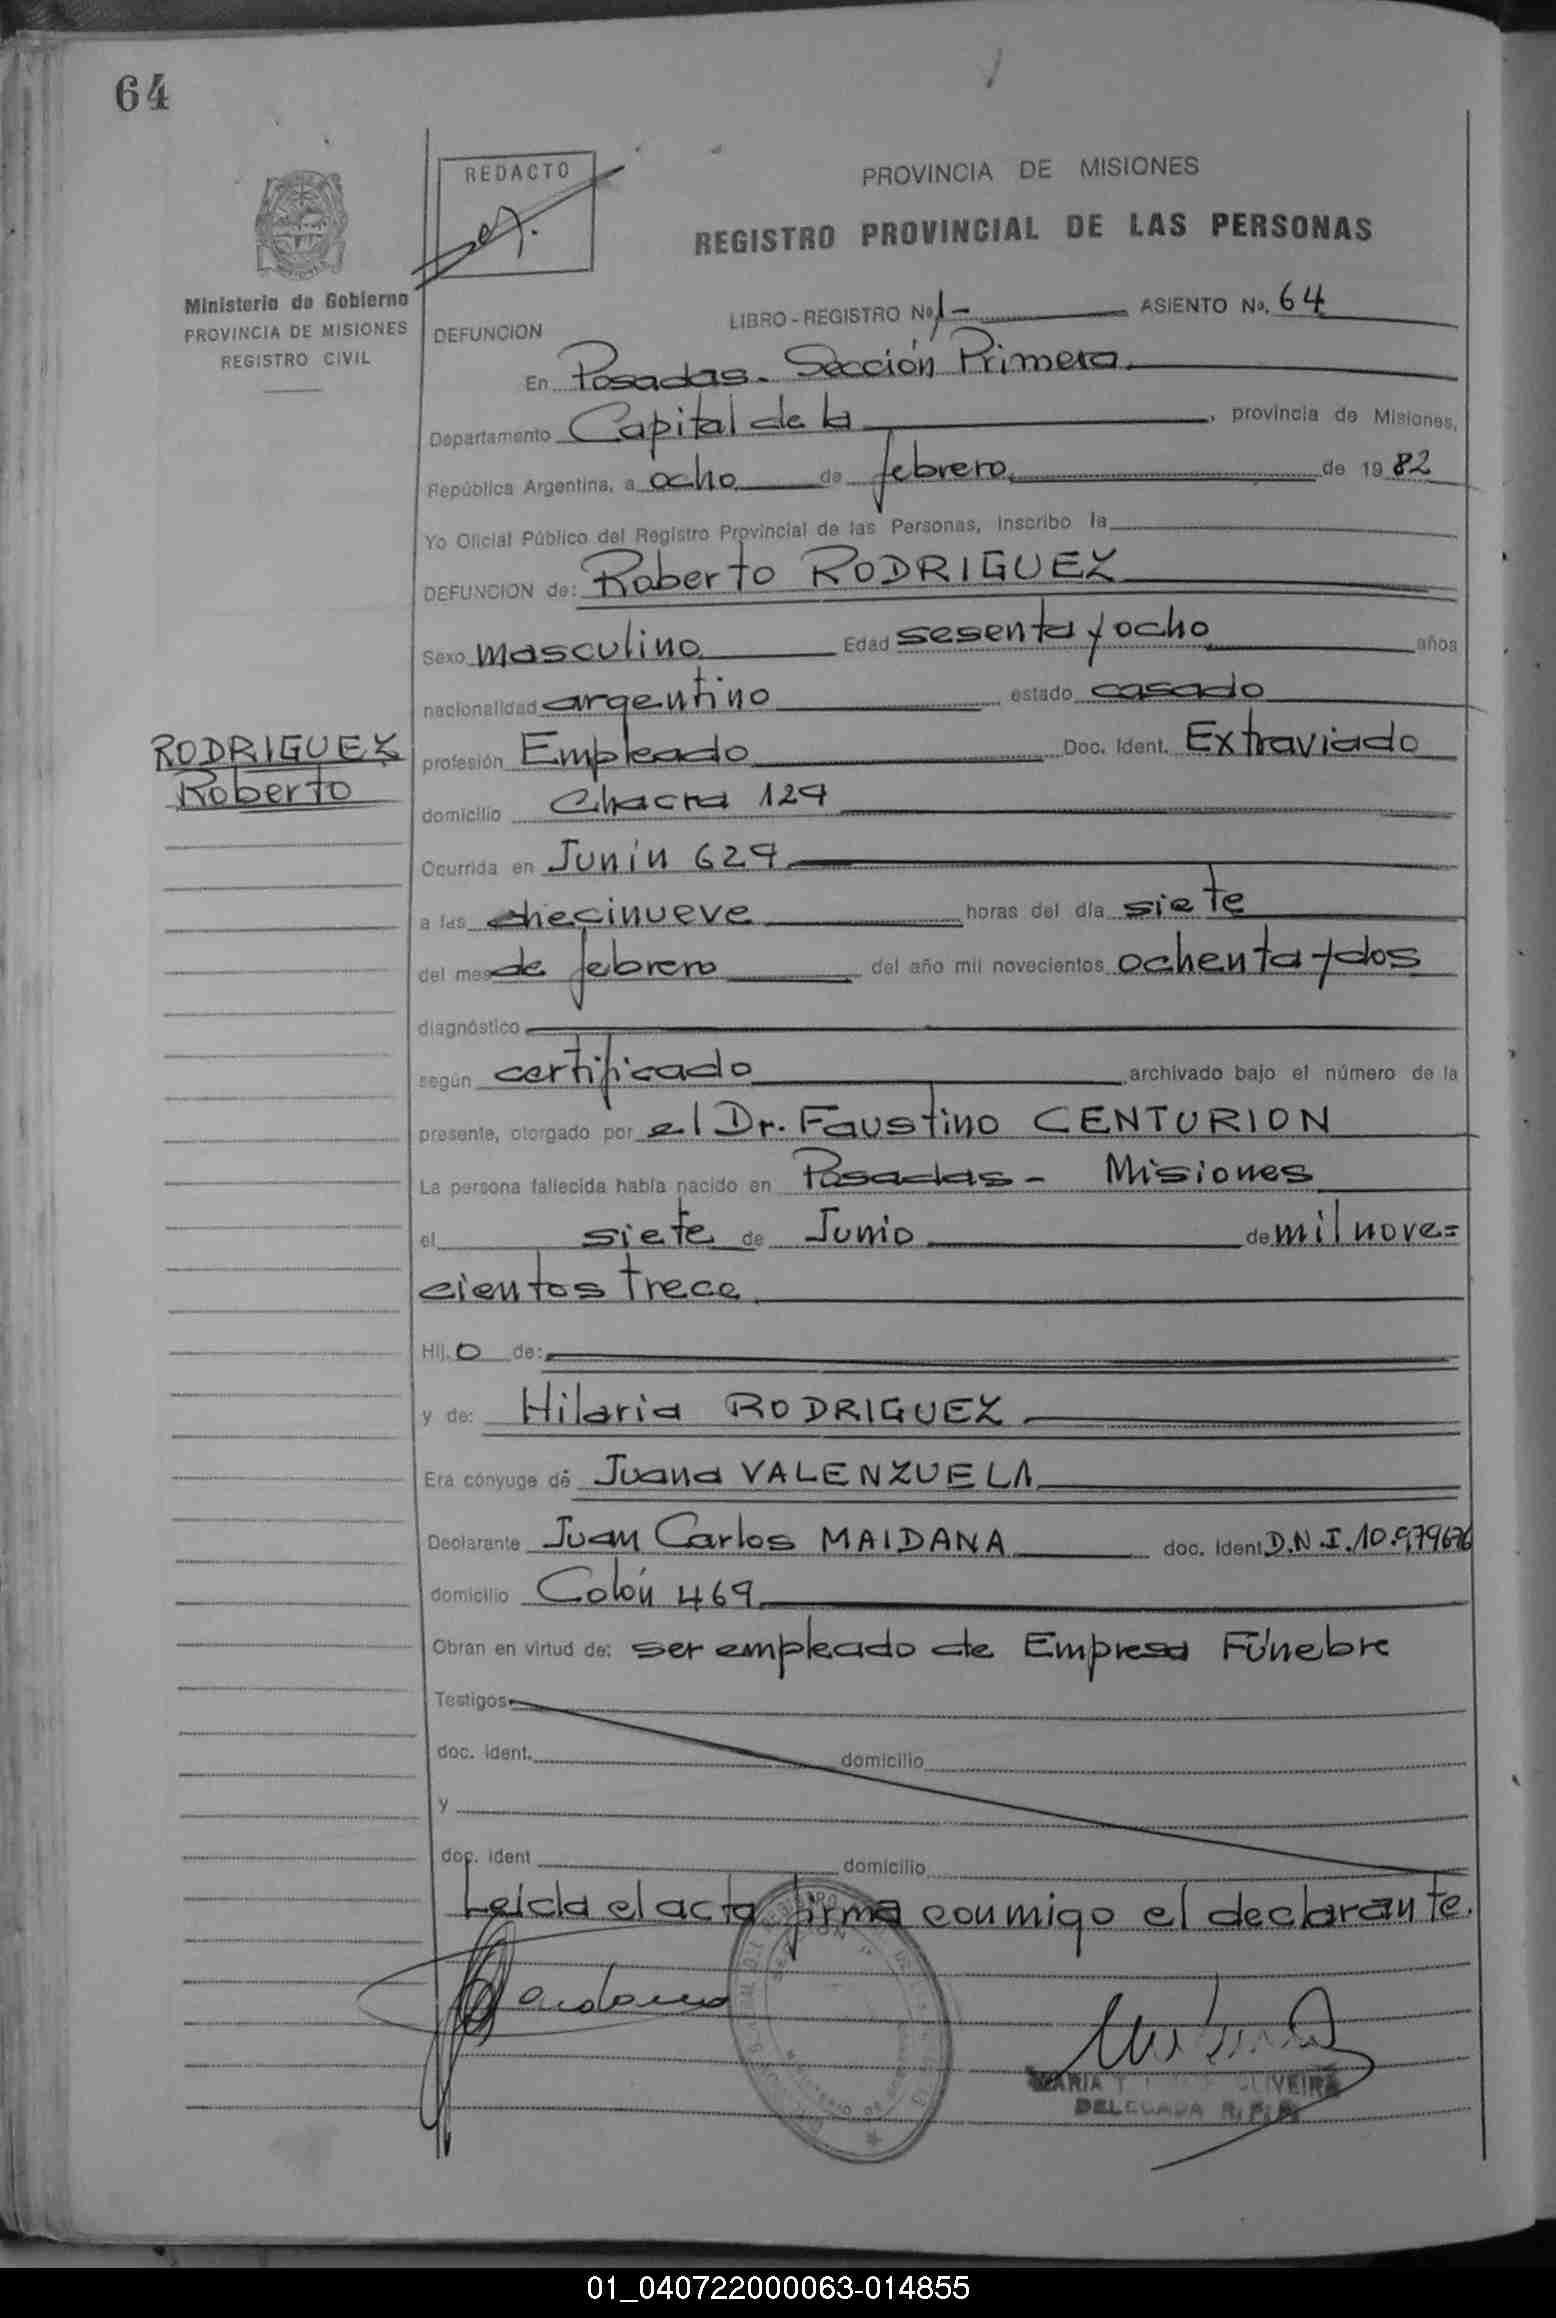 64
REDACTO
PROVINCIA DE MISIONES
REGISTRO PROVINCIAL DE LAS PERSONAS
Ministerio de Gobierno
PROVINCIA DE MISIONES
REGISTRO CIVIL
LIBRO - REGISTRO Nº 1 - ASIENTO Nº. 64
DEFUNCION
En Posadas - Sección Primera
Departamento Capital de la , provincia de Misiones,
República Argentina, a ocho de febrero de 1982
Yo Oficial Público del Registro Provincial de las Personas, inscribo la
DEFUNCION de: Roberto RODRIGUEZ
Sexo masculino Edad sesenta y ocho años
nacionalidad argentino estado casado
RODRIGUEZ
Roberto
profesión Empleado Doc. Ident. Extraviado
domicilio Chacra 129
Ocurrida en Junín 629
a las diecinueve horas del día siete
del mes de febrero del año mil novecientos ochenta y dos
diagnóstico
según certificado archivado bajo el número de la
presente, otorgado por el Dr. Faustino CENTURION
La persona fallecida había nacido en Posadas - Misiones
el siete de Junio de mil nove=
cientos trece
Hij o de:
y de: Hilaria RODRIGUEZ
Era cónyuge de Juana VALENZUELA
Declarante Juan Carlos MAIDANA doc. Ident D.N.I. 10.979676
domicilio Colón 469
Obran en virtud de: ser empleado de Empresa Fúnebre
Testigos
doc. ident. domicilio
y
doc. ident domicilio
Leida el acta firma conmigo el declarante.
MARIA OLIVEIRA
DELEGADA R.P.P.
01_040722000063-014855